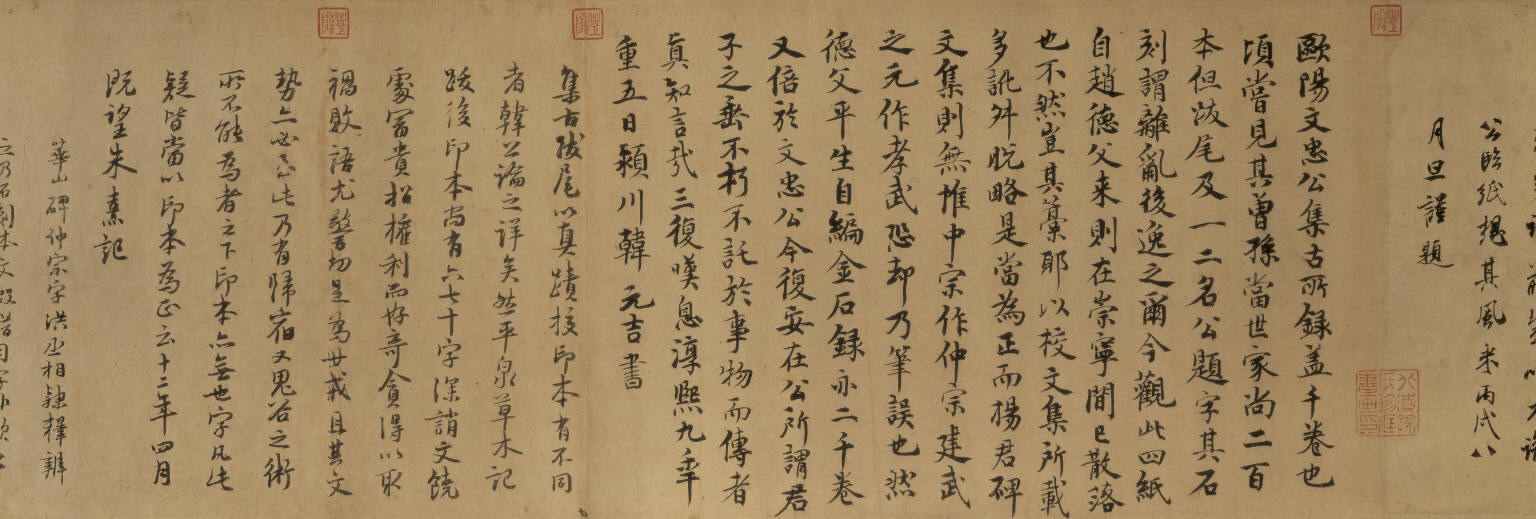 公臨紙想其風采丙戌八
月旦謹題
歐陽文忠公集古所録盖千卷也
頃嘗見其曽孫當世家尚二百
本但跋尾及一二名公題字其石
刻謂離亂後逸之爾今觀此四紙
自趙德父来則在崇寧間已散落
也不然豈其藁耶以校文集所載
多訛舛脱略是當為正而楊君碑
文集則無惟中宗作仲宗建武
之元作孝武恐却乃筆誤也然
德父平生自編金石録亦二千卷
又倍於文忠公今復安在公所謂君
子之垂不朽不託於事物而傳者
真知言哉三復嘆息淳熙九年
重五日潁川韓元吉書
集古跋尾以真蹟校印本有不同
者韓公論之詳矣然平泉草木記
跋後印本尚有六七十字深誚文饒
處富貴招權利而好奇貪得以取
禍敗語尤懇切是為世戒且其文
勢亦必至此乃有歸宿又鬼谷之術
所不能為者之下印本亦無也字凡此
疑皆當以印本為正云十二年四月
既望朱熹記
華山碑仲宗字洪丞相隸釋辨
之乃石刻本文假借用字非歐公